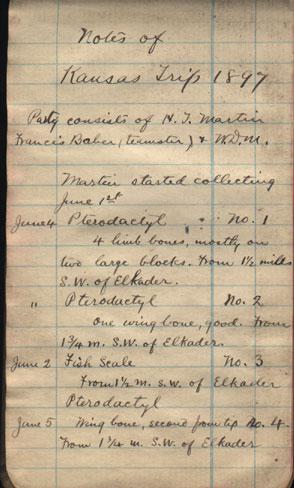 Notes of
Kansas Trip 1897
Party consists of H. T. Martin
Francis Baber, (teamster) & W.D.M.
Martin started collecting
June 1st
June 4 Pterodactyl : No. 1
4 limb bones, mostly on
two large blocks. From 1½ miles
S.W. of Elkader.
" Pterodactyl No. 2
One wing bone, good. From
1¾ m. S.W. of Elkader.
June 2 Fish Scale No. 3
From 1½ m. S.W. of Elkader
Pterodactyl
June 5 Wing bone, second from tip No. 4.
From 1¾ m. S.W. of Elkader